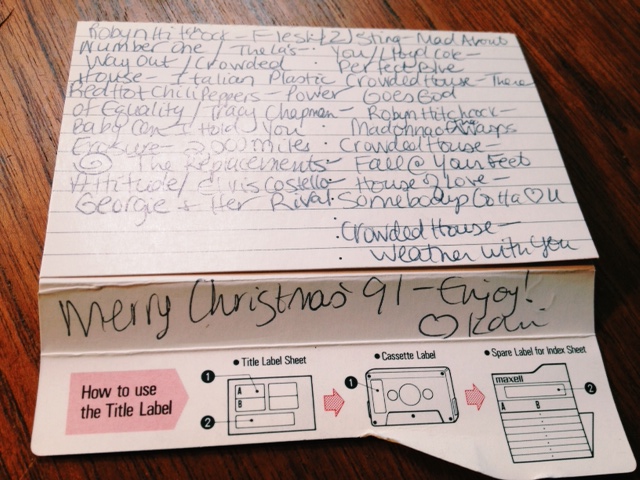 Robyn Hitchcock - Flesh #1 / Sting - Mad About
Number One / The La's - You / Lloyd Cole -
Way Out / Crowded Perfect Blue
House - Italian Plastic Crowded House - There
Red Hot Chili Peppers - Power Goes God
of Equality / Tracy Chapman - Robyn Hitchcock -
Baby Can I Hold You Madonna of the Wasps
Erasure - 2000 Miles Crowded House -
The Replacements - Fall @ Your Feet
Attitude / Elvis Costello - House of Love -
Georgie & Her Rival Somebody Gotta ♡ U
Crowded House -
Weather with you
Merry Christmas 91 - Enjoy!
♡
How to use
the Title Label
• Title Label Sheet
• Cassette Label
• Spare Label for Index Sheet
1
A
B
2
1
maxell
A B
2